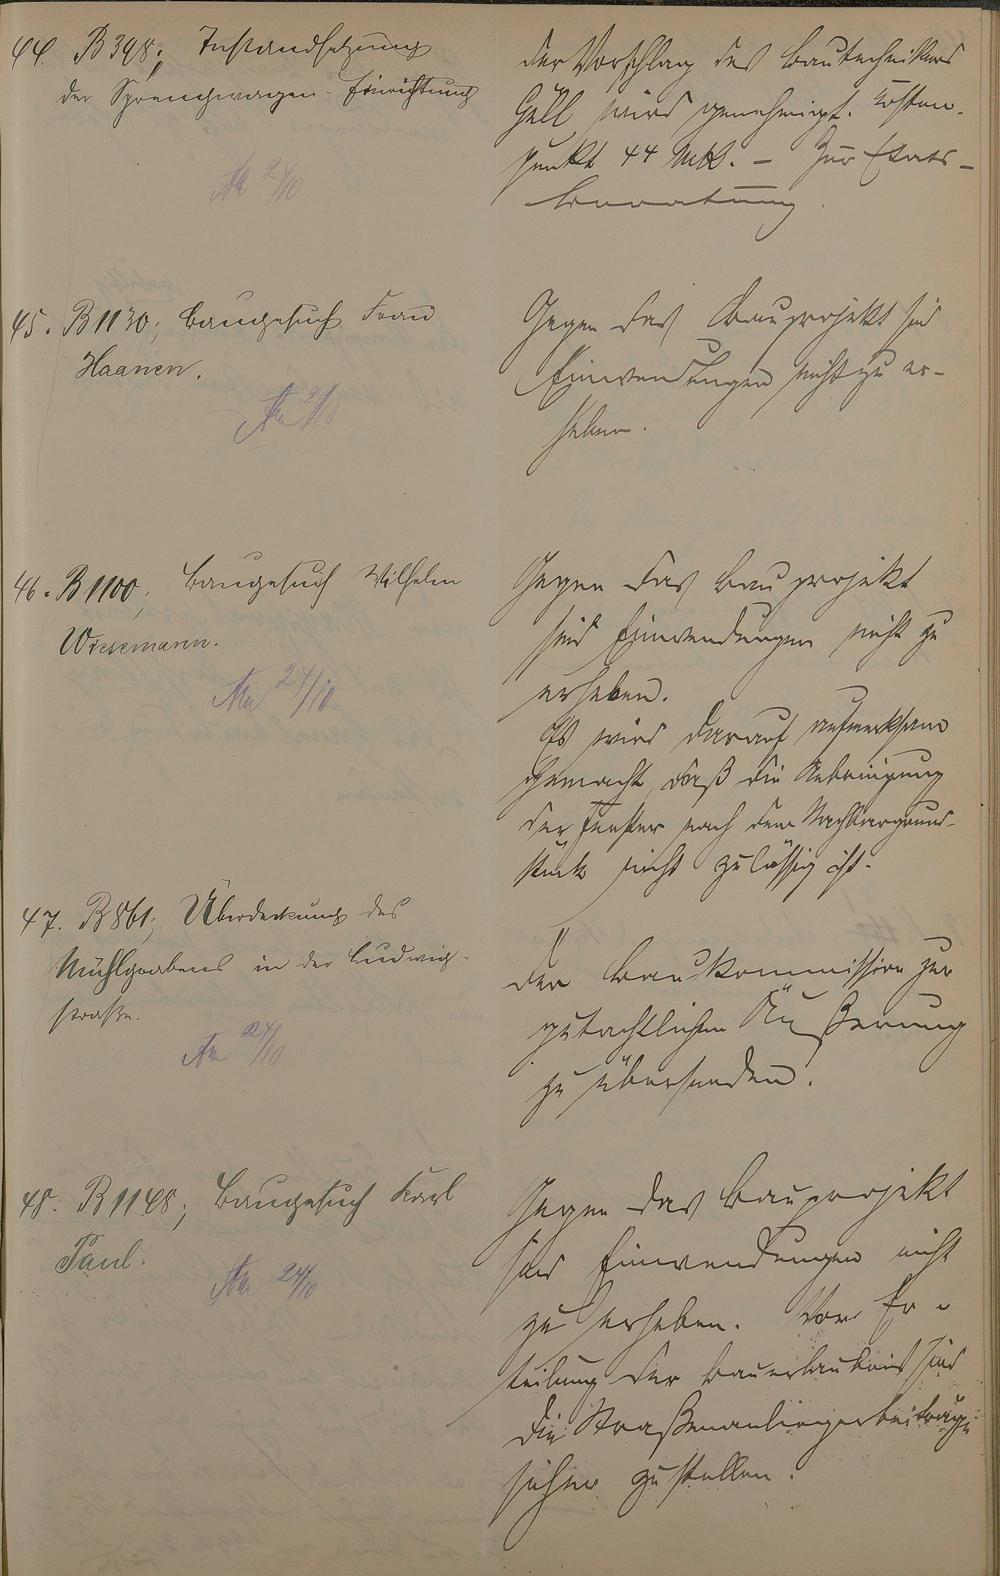 44. B 398; Instandsetzung
der Sprengwagen-Einrichtung
24/10
Der Vorschlag des Bautechnikers
Göll wird genehmigt. Kosten-
punkt 44 Mk. - Zur Etats-
beratung.
45. B 1130; Baugesuch Frau
Haanen.
Gegen das Bauprojekt sind
Einwendungen nicht zu er-
heben.
46. B 1100; Baugesuch Wilhelm
Wiesemann.
24/10
Gegen das Bauprojekt
sind Einwendungen nicht zu
erheben.
Es wird darauf aufmerksam
gemacht, daß die Anbringung
der Fenster nach dem Nachbargrund-
stück nicht zulässig ist.
47. B 861; Überdeckung des
Mühlgrabens in der Ludwig-
straße.
24/10
Der Baukommission zur
gutachtlichen Äußerung
zu übersenden.
48. B 1148; Baugesuch Karl
Paul.
24/10
Gegen das Bauprojekt
sind Einwendungen nicht
zu erheben. Vor Er-
teilung der Bauerlaubnis sind
die Straßenanliegerbeiträge
sicher zu stellen.